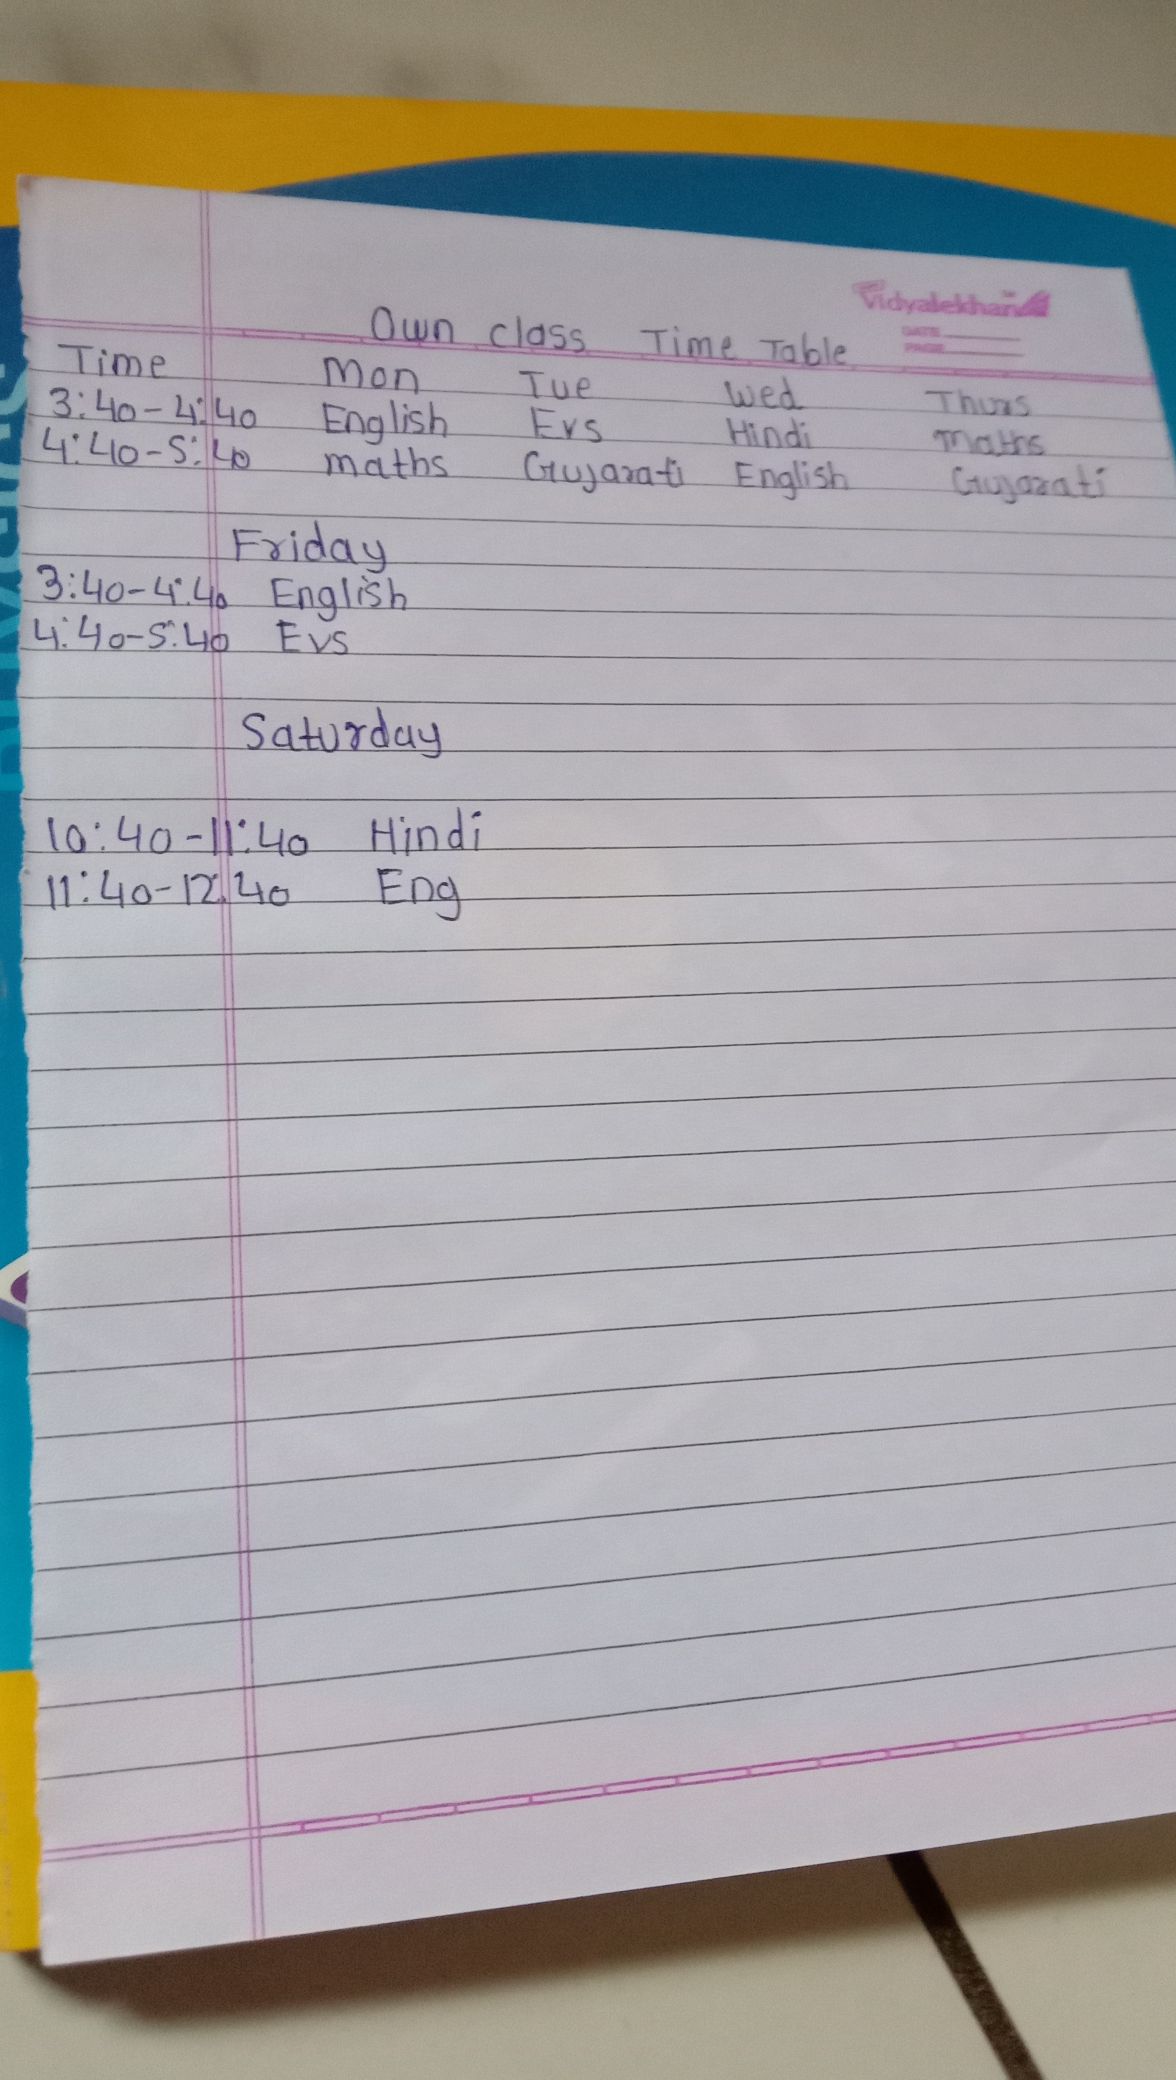 Vidyalekhan
DATE
PAGE
Own class Time Table
Time Mon Tue Wed Thurs
3:40-4:40 English Evs Hindi maths
4:40-5:40 maths Gujarati English Gujarati
Friday
3:40-4:40 English
4:40-5:40 Evs
Saturday
10:40-11:40 Hindi
11:40-12:40 Eng